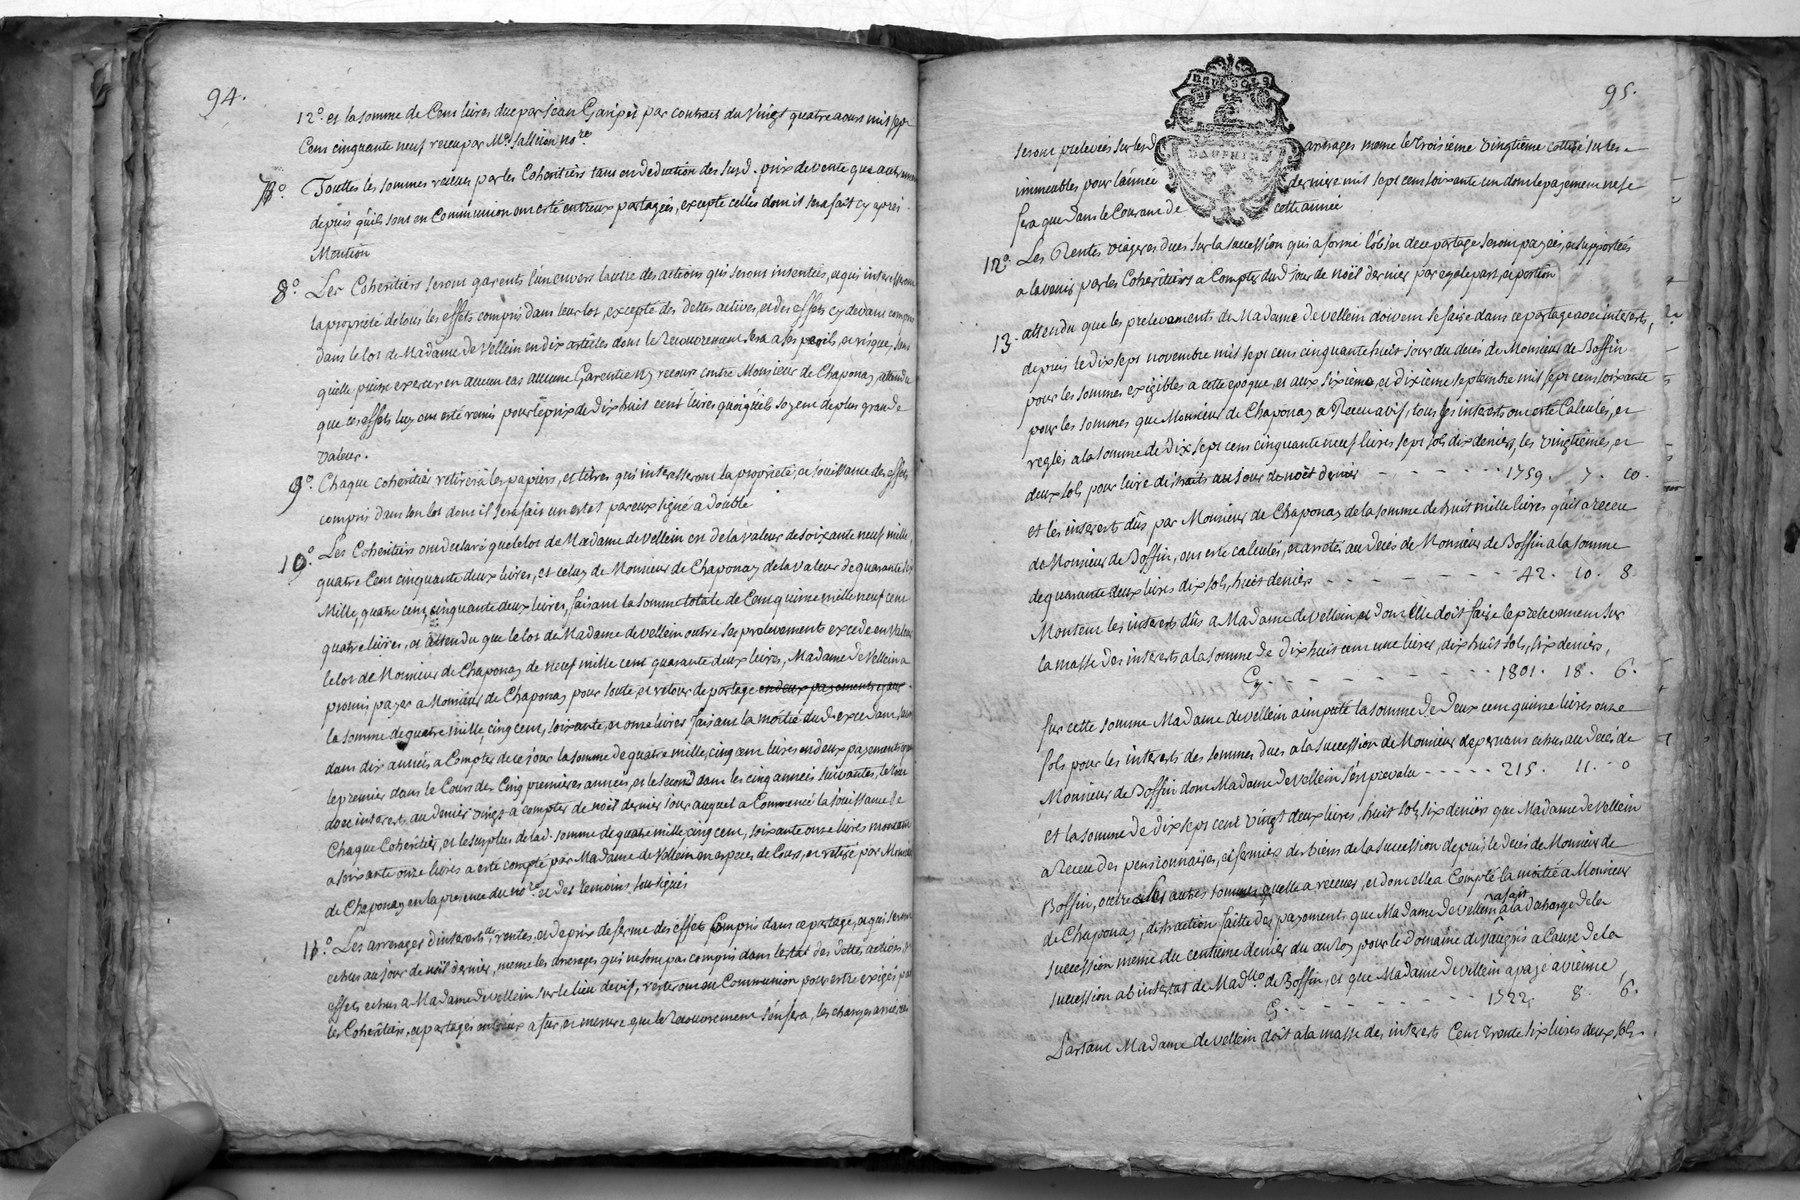 94.
12.° et la somme de Cens livres due par jean Garipet par contract du Vingt quatre aoust mil sept
Cens cinquante neuf receu par M.e sallicon no.re
7.° Touttes les sommes receues par les Coheritiers tans en deduction des susd. prix de vente que autrement
depuis quils sont en Communion ont esté entreux partagées, excepté celles dont il sera fait cy apres
Mention
8.° Les Coheritiers seront garents l'un envers lautre des actions qui seront intentées, et qui interesseront
la propriété de tous les effets compris dans leur lot, excepté des dettes actives, et des effets cy devant compris
dans le lot de Madame de Vellein en dix articles dont le Recouvrement sera a ses perils, et risques, sans
quelle puisse exercer en aucun cas aucune Garentie ny recours contre Monsieur de Chaponay, attendu
que ces effets luy ont esté remis pour le prix de dix huit cent livres quoiquils soyent de plus grande
valeur.
9.° Chaque coheritier retirera les papiers, et titres qui interesseront la propriété, et jouissance des effets
compris dans son lot dont il sera fait un estat par eux signé a double
10.° Les Coheritiers ont declaré que le lot de Madame de Vellein est de la valeur de soixante neuf mille,
quatre Cens cinquante deux livres, et celuy de Monsieur de Chaponay de la valeur de quarante six
Mille, quatre cent, cinquante deux livres, faisant la somme totale de Cent quinze mille neuf cent
quatre livres, et attendu que le lot de Madame de Vellein outre ses prelevements excede en Valeur
le lot de Monsieur de Chaponay de neuf mille cent quarante deux livres, Madame de Vellein a
promis payer a Monsieur de Chaponay pour soute, et retour de partage en deux payements egaux
la somme de quatre mille, cinq cent, soixante, et onze livres faisant la moitié dud. excedant, savoir
dans dix années a Compter de ce jour la somme de quatre mille, cinq cent livres en deux payements egaux
le premier dans le Cours des Cinq premieres années, et le second dans les cinq années suivantes, le tout
avec interest au denier vingt a compter de noël dernier jour auquel a Commencé la jouissance de
Chaque Cohéritier, et le surplus de lad. somme de quatre mille, cinq cent, soixante onze livres montant
a soixante onze livres a esté compté par Madame de Vellein en especes de Cours, et retiré par Monsieur
de Chaponay en la presence du no.re et des temoins soussignés
11.° Les arrerages d'interests, de rentes, et de prix de ferme des effets compris dans ce partage, et qui seront
echus au jour de noël dernier, meme les arrerages qui ne sont pas compris dans lestat des dettes actives, et
effets echus a Madame de Vellein sur le lieu de vif, resteront en Communion pour estre exigés par
les Coheritiers, et partagés entr'eux a fur, et mesure que le Recouvrement s'en fera, les charges arrierées
95.
DAUPHINE
seront prelevées sur lesd. arrerages meme le troisieme vingtième cottisé sur les
immeubles pour lannée derniere mil sept cens soixante un dont le payement ne se
fera que dans le Courant de cette année
12.° Les Rentes viageres dues sur la succession qui a formé l'objet de ce partage seront payées, et supportées
a lavenir par les Cohéritiers a Compter dud. jour de noël dernier par egale part, et portion
13. attendu que les prelevements de Madame de Vellein doivent se faire dans ce partage avec interests,
depuis le dix sept novembre mil sept cens cinquante huit jour du decés de Monsieur de Boffin
pour les sommes exigibles a cette epoque, et aux sixième, et dixieme septembre mil sept cens soixante
pour les sommes que Monsieur de Chaponay a Receu a vif, tous les interests ont esté Calculés, et
reglés a la somme de Dix sept cens cinquante neuf livres sept sols dix deniers, les vingtiemes, et
deux sols pour livre distraits au jour de noël dernier - - - - - 1759. 7. 10.
et les interests dûs par Monsieur de Chaponay de la somme de huit mille livres quil a receu
de Monsieur de Boffin, ont esté calculés, et arretés au decés de Monsieur de Boffin a la somme
de quarante deux livres dix sols, huit deniers - - - - - - 42. 10. 8.
Montent les interests dûs a Madame de Vellein, et dont elle doit faire le prelevement sur
la masse des interests a la somme de dix huit cent une livres, dix huit sols, six deniers,
Cy - - - - - - - 1801. 18. 6.
sur cette somme Madame de Vellein a imputé la somme de Deux cent quinze livres onze
sols pour les interests des sommes dues a la succession de Monsieur de pernans echus au decés de
Monsieur de Boffin dont Madame de Vellein s'est prevalu - - - - - 215. 11. 0
et la somme de dix sept cent vingt deux livres, huit sols, six deniers que Madame de Vellein
a Receu des pensionnaires, et fermiers des Biens de la succession depuis le decés de Monsieur de
Boffin, outre les autres sommes quelle a receues, et dont elle a Compté la moitié a Monsieur
de Chaponay, distraction faitte des payements que Madame de Vellein a fait a la decharge de la
succession meme du centième denier du au Roy pour le Domaine de Vaugris a Cause de la
succession ab intestat de Mad.lle de Boffin, et que Madame de Vellein a payé a vienne
Cy - - - - - - - 1722. 8. 6.
Partant Madame de Vellein doit a la masse des interests Cent trente six livres deux sols